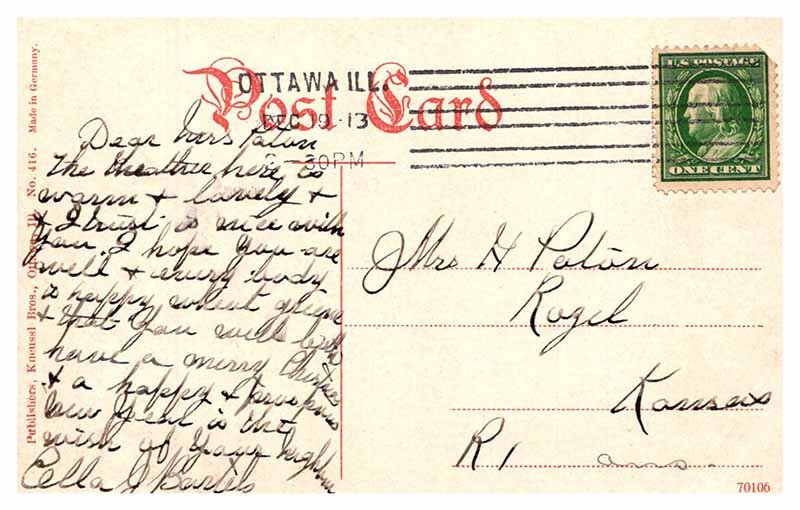 Post Card
OTTAWA ILL.
DEC 19 - 13
30 PM
U.S. POSTAGE
ONE CENT
Dear Mrs Paton
The Weather here is
warm + lovely +
+ I trust is nice with
you. I hope you are
well + every body
is happy wheat green
+ that you will both
have a merry
+ a happy +
New Year is the
wish of your neighbor
Cella J Bartels
Mrs H Paton
Rozel
Kansas
R 1
Publishers, Kneussl Bros., Ottawa, Ill. No. 416. Made in Germany.
70106